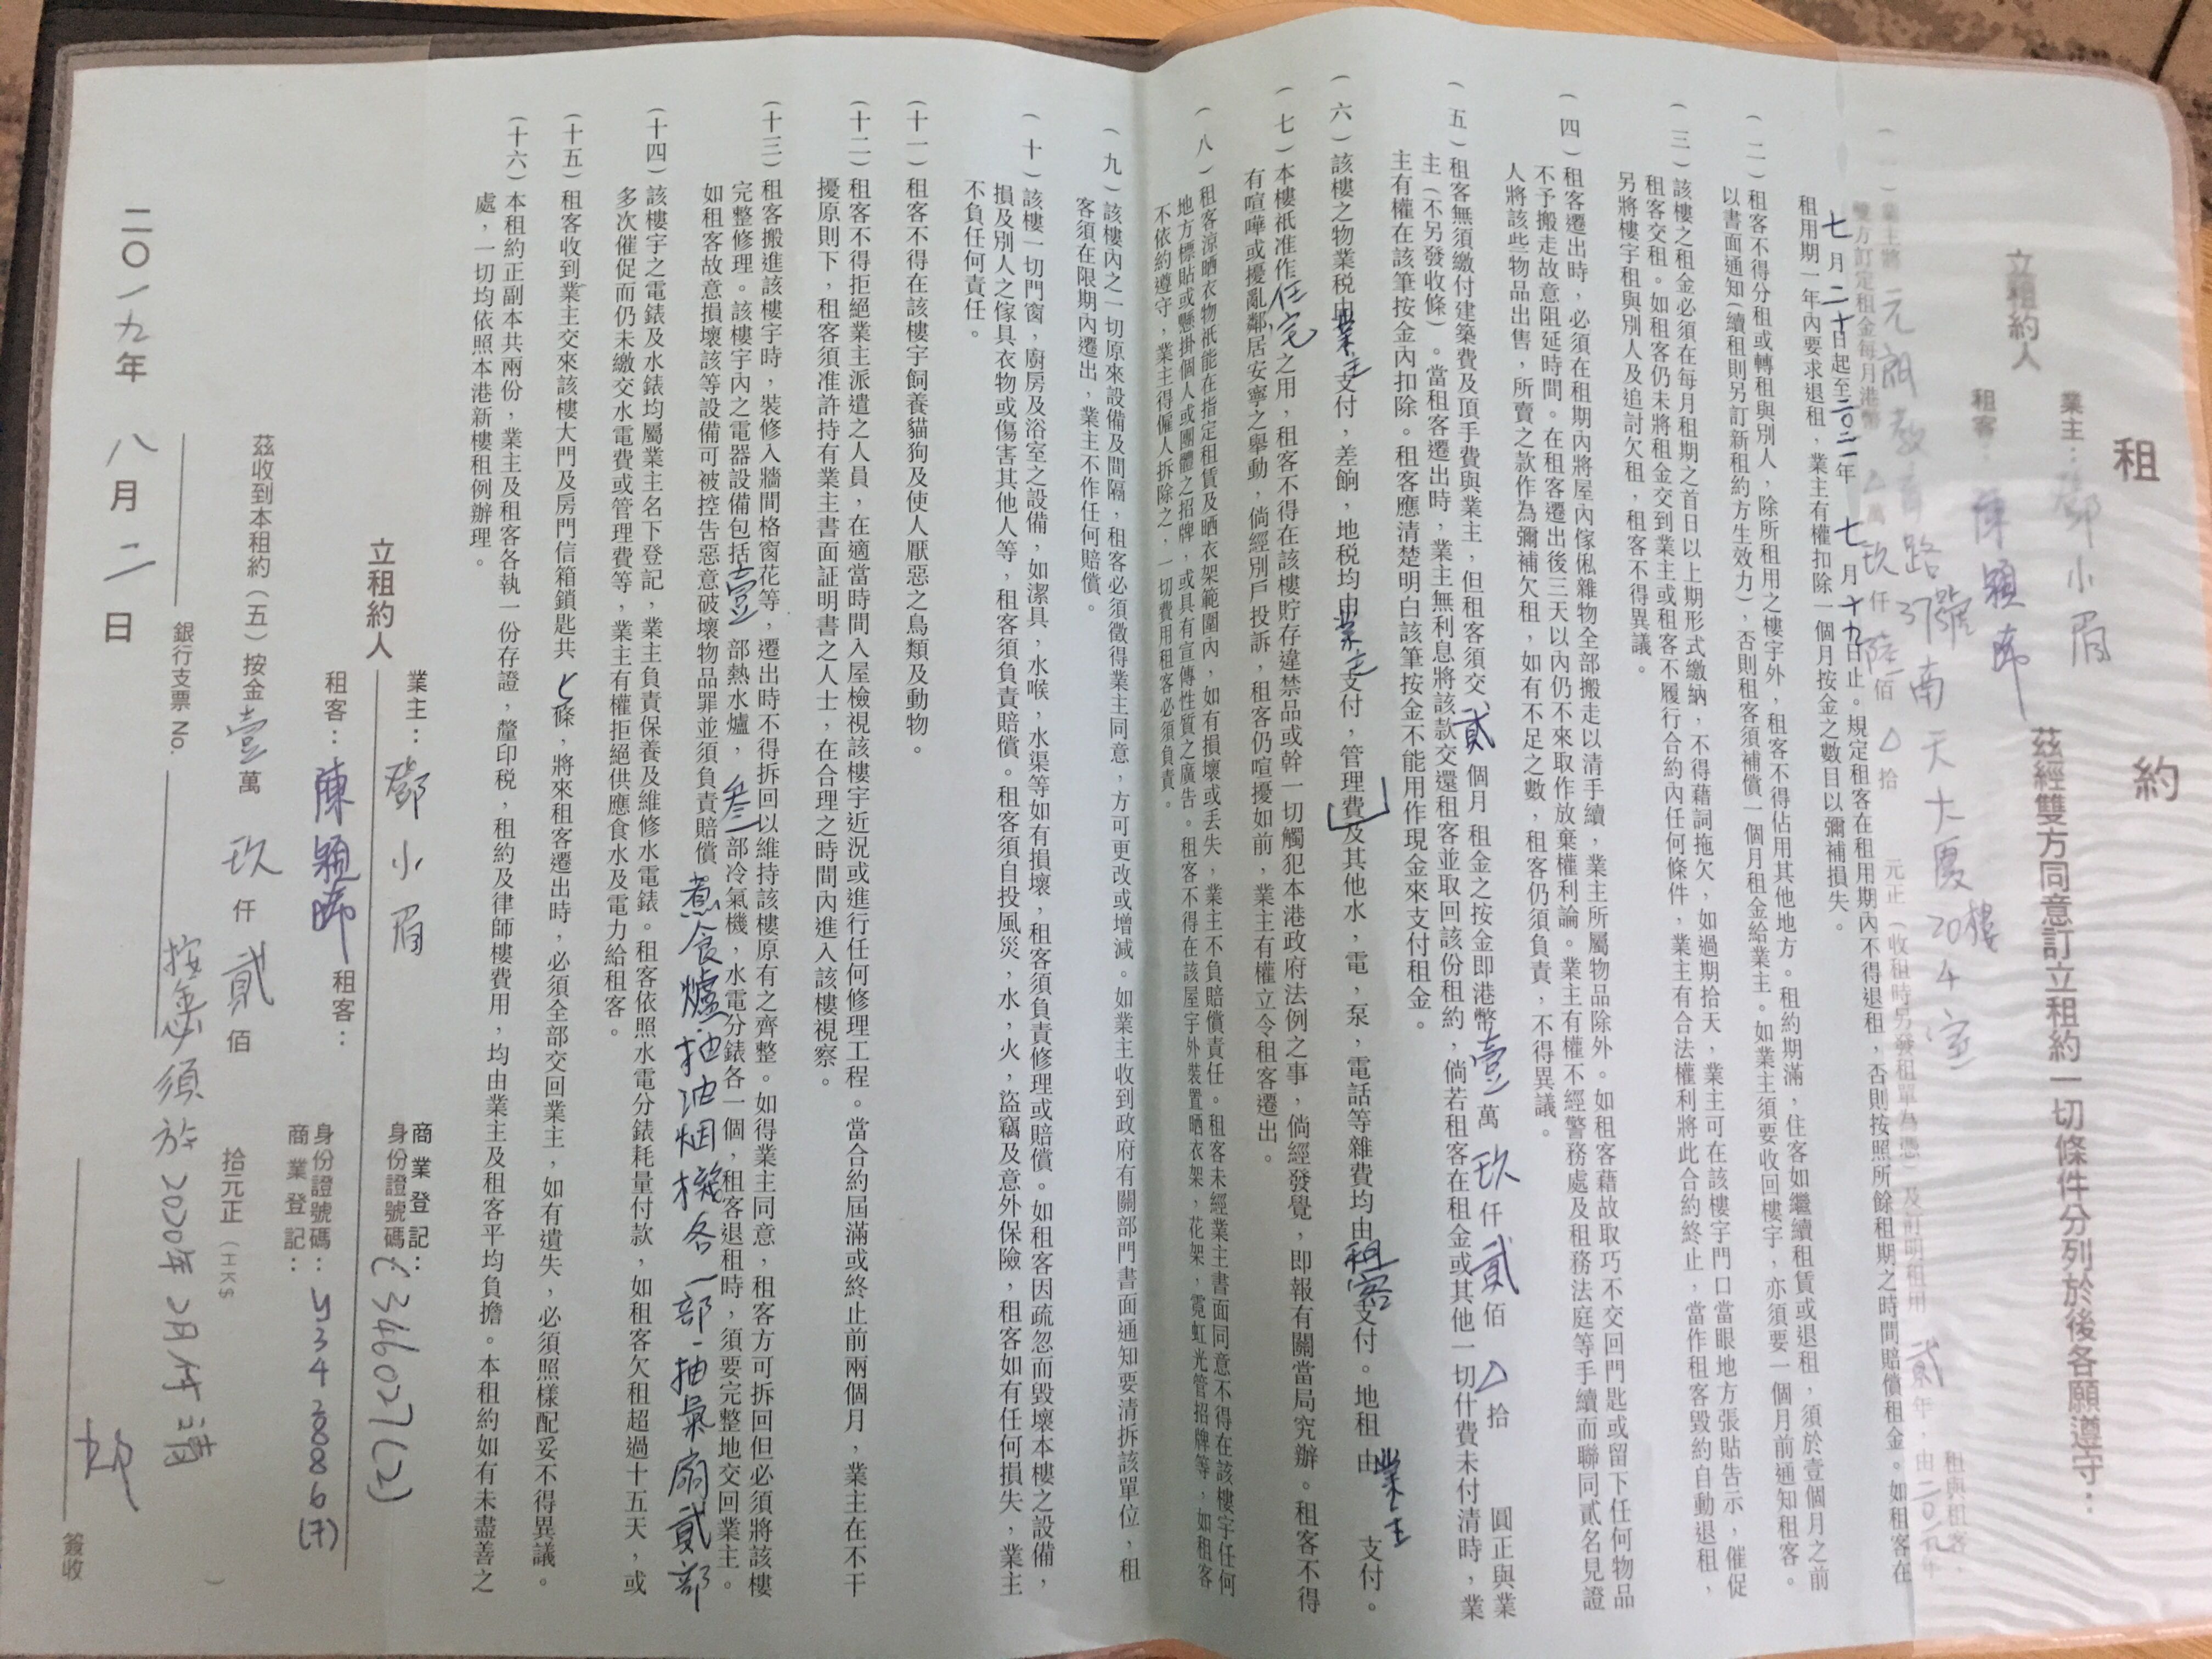 租 約
業主：鄧小眉
立租約人
租客：陳穎晞
茲經雙方同意訂立租約一切條件分列於後各願遵守：
業主將元朗教育路37號南天大廈20樓4室 租與租客，
雙方訂定租金每月港幣△萬玖仟陸佰△拾 元正（收租時另發租單為憑）及訂明租用貳年，由二〇一九年
七月二十日起至二〇二一年七月十九日止。規定租客在租用期內不得退租，否則按照所餘租期之時間賠償租金。如租客在
租用期一年內要求退租，業主有權扣除一個月按金之數目以彌補損失。
（二）租客不得分租或轉租與別人，除所租用之樓宇外，租客不得佔用其他地方。租約期滿，住客如繼續租賃或退租，須於壹個月之前
以書面通知（續租則另訂新租約方生效力），否則租客須補償一個月租金給業主。如業主須要收回樓宇，亦須要一個月前通知租客。
（三）該樓之租金必須在每月租期之首日以上期形式繳納，不得藉詞拖欠，如過期拾天，業主可在該樓宇門口當眼地方張貼告示，催促
租客交租。如租客仍未將租金交到業主或租客不履行合約內任何條件，業主有合法權利將此合約終止，當作租客毀約自動退租，
另將樓宇租與別人及追討欠租，租客不得異議。
（四）租客遷出時，必須在租期內將屋內傢俬雜物全部搬走以清手續，業主所屬物品除外。如租客藉故取巧不交回門匙或留下任何物品
不予搬走故意阻延時間。在租客遷出後三天以內仍不來取作放棄權利論。業主有權不經警務處及租務法庭等手續而聯同貳名見證
人將該些物品出售，所賣之款作為彌補欠租，如有不足之數，租客仍須負責，不得異議。
（五）租客無須繳付建築費及頂手費與業主，但租客須交貳個月租金之按金即港幣壹萬玖仟貳佰△拾 圓正與業
主（不另發收條）。當租客遷出時，業主無利息將該款交還租客並取回該份租約，倘若租客在租金或其他一切什費未付清時，業
主有權在該筆按金內扣除。租客應清楚明白該筆按金不能用作現金來支付租金。
（六）該樓之物業税由業主支付，差餉，地税均由業主支付，管理費及其他水，電，泵，電話等雜費均由租客支付。地租由業主支付。
（七）本樓祇准作住宅之用，租客不得在該樓貯存違禁品或幹一切觸犯本港政府法例之事，倘經發覺，即報有關當局究辦。租客不得
有喧嘩或擾亂鄰居安寧之舉動，倘經別戶投訴，租客仍喧擾如前，業主有權立令租客遷出。
（八）租客涼晒衣物祇能在指定租賃及晒衣架範圍內，如有損壞或丟失，業主不負賠償責任。租客未經業主書面同意不得在該樓宇任何
地方標貼或懸掛個人或團體之招牌，或具有宣傳性質之廣告。租客不得在該屋宇外裝置晒衣架，花架，霓虹光管招牌等，如租客
不依約遵守，業主得僱人拆除之，一切費用租客必須負責。
（九）該樓內之一切原來設備及間隔，租客必須徵得業主同意，方可更改或增減。如業主收到政府有關部門書面通知要清拆該單位，租
客須在限期內遷出，業主不作任何賠償。
（十）該樓一切門窗，廚房及浴室之設備，如潔具，水喉，水渠等如有損壞，租客須負責修理或賠償。如租客因疏忽而毀壞本樓之設備，
損及別人之傢具衣物或傷害其他人等，租客須負責賠償。租客須自投風災，水，火，盜竊及意外保險，租客如有任何損失，業主
不負任何責任。
（十一）租客不得在該樓宇飼養貓狗及使人厭惡之鳥類及動物。
（十二）租客不得拒絕業主派遣之人員，在適當時間入屋檢視該樓宇近況或進行任何修理工程。當合約屆滿或終止前兩個月，業主在不干
擾原則下，租客須准許持有業主書面証明書之人士，在合理之時間內進入該樓視察。
（十三）租客搬進該樓宇時，裝修入牆間格窗花等，遷出時不得拆回以維持該樓原有之齊整。如得業主同意，租客方可拆回但必須將該樓
完整修理。該樓宇內之電器設備包括壹部熱水爐，叁部冷氣機，水電分錶各一個，租客退租時，須要完整地交回業主。
如租客故意損壞該等設備可被控告惡意破壞物品罪並須負責賠償。煮食爐、抽油烟機各一部，抽氣扇貳部
（十四）該樓宇之電錶及水錶均屬業主名下登記，業主負責保養及維修水電錶。租客依照水電分錶耗量付款，如租客欠租超過十五天，或
多次催促而仍未繳交水電費或管理費等，業主有權拒絕供應食水及電力給租客。
（十五）租客收到業主交來該樓大門及房門信箱鎖匙共七條，將來租客遷出時，必須全部交回業主，如有遺失，必須照樣配妥不得異議。
（十六）本租約正副本共兩份，業主及租客各執一份存證，釐印税，租約及律師樓費用，均由業主及租客平均負擔。本租約如有未盡善之
處，一切均依照本港新樓租例辦理。
業主：鄧小眉 商業登記：
身份證號碼
立租約人
租客：陳穎晞 租客： 身份證號碼：Y342886(7)
商業登記：
茲收到本租約（五）按金壹萬玖仟貳佰 拾元正（HK$ ）
銀行支票 No. 按金必須於2020年2月付清
簽收
二〇一九年八月二日